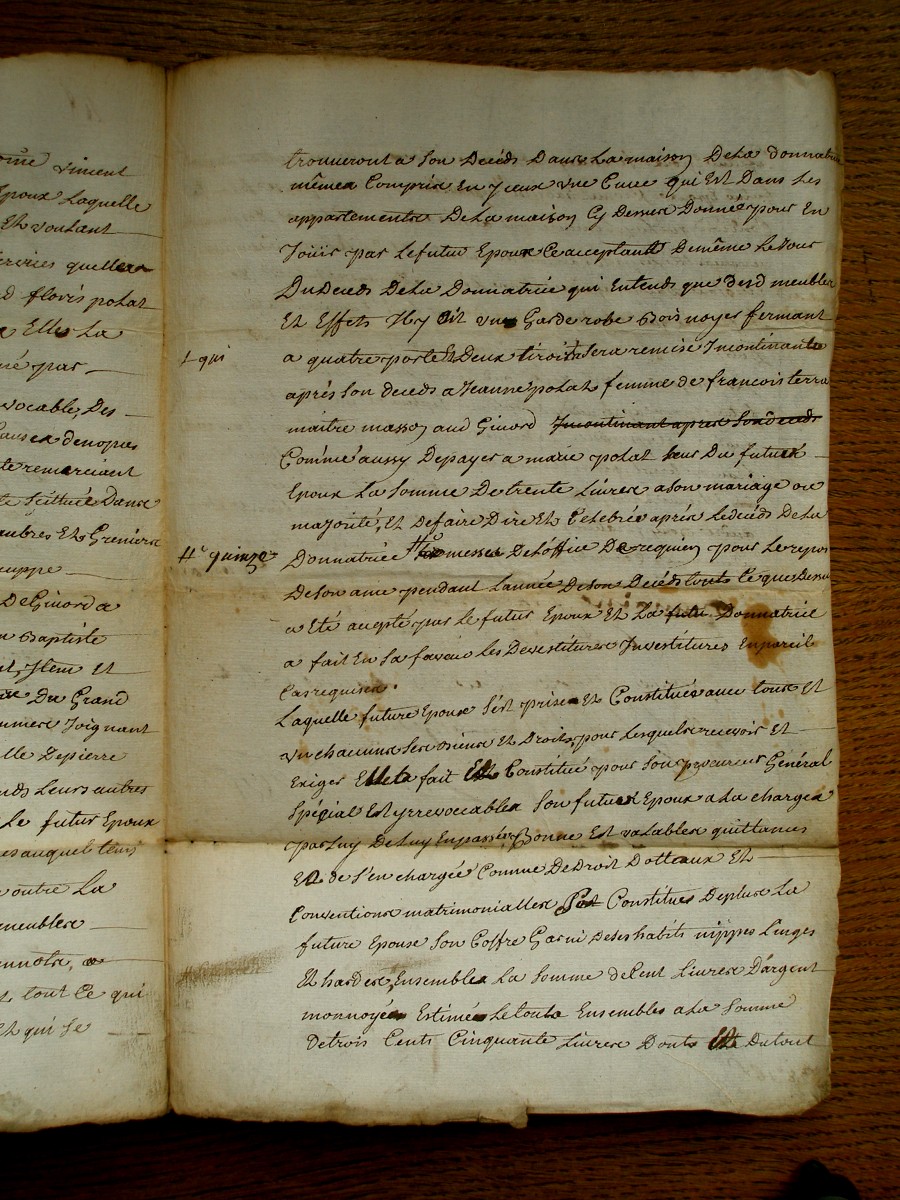 viment
Epoux Laquelle
Et voulant
services quelles
d florés polat
Elle La
né par
vocable, Des
causes denopces
te remerciant
te scittuée Dans
aubres Et Greniers
De Givord a
Baptiste
it, Item et
Du Grand
Joignant
lle Depierre
nds Leurs autres
Le futur Epoux
es auquel tems
outre La
meubles
tout Ce qui
Et qui se
trouveront a Son Decéds Dans La maison DeLa donnatrice
même a Compris En yceux une Cuve qui Est Dans Les
appartements DeLa maison Cy Dessus Donnée pour En
Joüir par Le futur Epoux Ce acceptant Demême Le Jour
Du Deceds DeLa Donnatrice qui Entends que desd meubles
Et Effets Il y ait une Garderobe Bois noyer fermant
+ qui
a quatre porte Et Deux tiroirs + Sera remise Incontinant
après Son deceds a Jeanne polat femme de francois terra
maitre masson aud Givord Incontinant apres Son deceds
Comme aussy Depayer a marie polat seur Du futur
Epoux La Somme De trente Livres a son mariage ou
majorité, Et Defaire Dire Et Celebrée après Le decéds DeLa
# quinze
Donnatrice # messes De L'office De requiem pour Le repos
De son ame pendant L'année De son Decéds touts Ce que Dessus
a Eté accepté par Le futur Epoux Et La futu Donnatrice
a fait En Sa faveur Les Devestitures Investitures En pareil
Cas requises.
Laquelle future Epouse S'est prise Et Constituée avec tous Et
un chacuns Ses Biens Et Droits, pour Lesquels recevoir Et
Exiger Elle a fait Et Constitué pour Son procureur Général
Spécial Et yrrevocable Son futur Epoux a La charge
par Luy De Luy En passer Bonne Et valable quittances
Et de s'en chargée Comme De Droit Dotteaux Et
Conventions matrimonialles Constitue Deplus La
future Epouse Son Coffre Garni De ses habits nippes Linges
Et hardes, Ensembles La Somme de Cent Livres D'argent
monnoyée Estimée Le tout Ensembles a La Somme
De trois Cents Cinquante Livres Dont Du tout